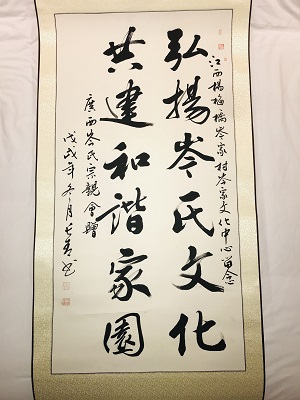 江西杨梅橋岑家村岑家文化中心留念
弘揚岑氏文化
共建和諧家園
廣西岑氏宗親會贈
戊戌年冬月